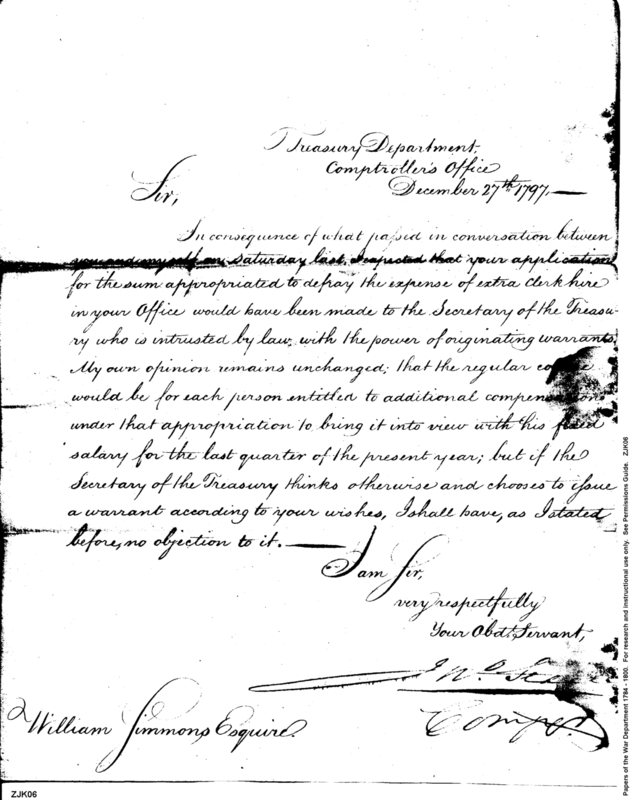 Treasury Department.
Comptroller's Office
December 27th 1797.
Sir,
In consequence of what passed in conversation between
you and myself on Saturday last, I expected that your application
for the sum appropriated to defray the expense of extra Clerk hire
in your Office would have been made to the Secretary of the Treasu-
ry who is intrusted by law, with the power of originating warrants.
My own opinion remains unchanged; that the regular
would be for each person entitled to additional compensation
under that appropriation to bring it into view with his fixed
salary for the last quarter of the present year; but if the
Secretary of the Treasury thinks otherwise and chooses to issue
a warrant according to your wishes, I shall have, as I stated
before, no objection to it.
I am Sir,
very respectfully
Your Obdt. Servant,
Jno.
Compt.
William Simmons Esquire
ZJK06
Papers of the War Department 1784 - 1800. For research and instructional use only. See Permissions Guide. ZJK06